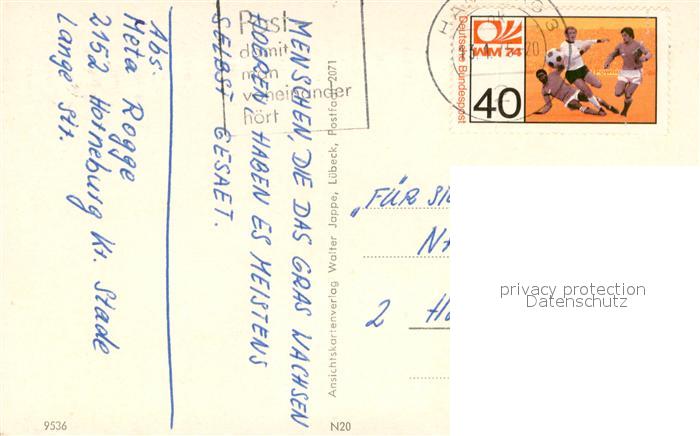 Abs.
Meta Rogge
2152 Horneburg Kr. Stade
Lange Str.
MENSCHEN, DIE DAS GRAS WACHSEN
HÖEREN HABEN ES MEISTENS
SELBST GESAET.
Post
damit
man
voneinander
hört
Ansichtskartenverlag Walter Jappe, Lübeck, Postfach 2071
Deutsche Bundespost
WM 74
40
"FÜR
2
privacy protection
Datenschutz
9536
N20